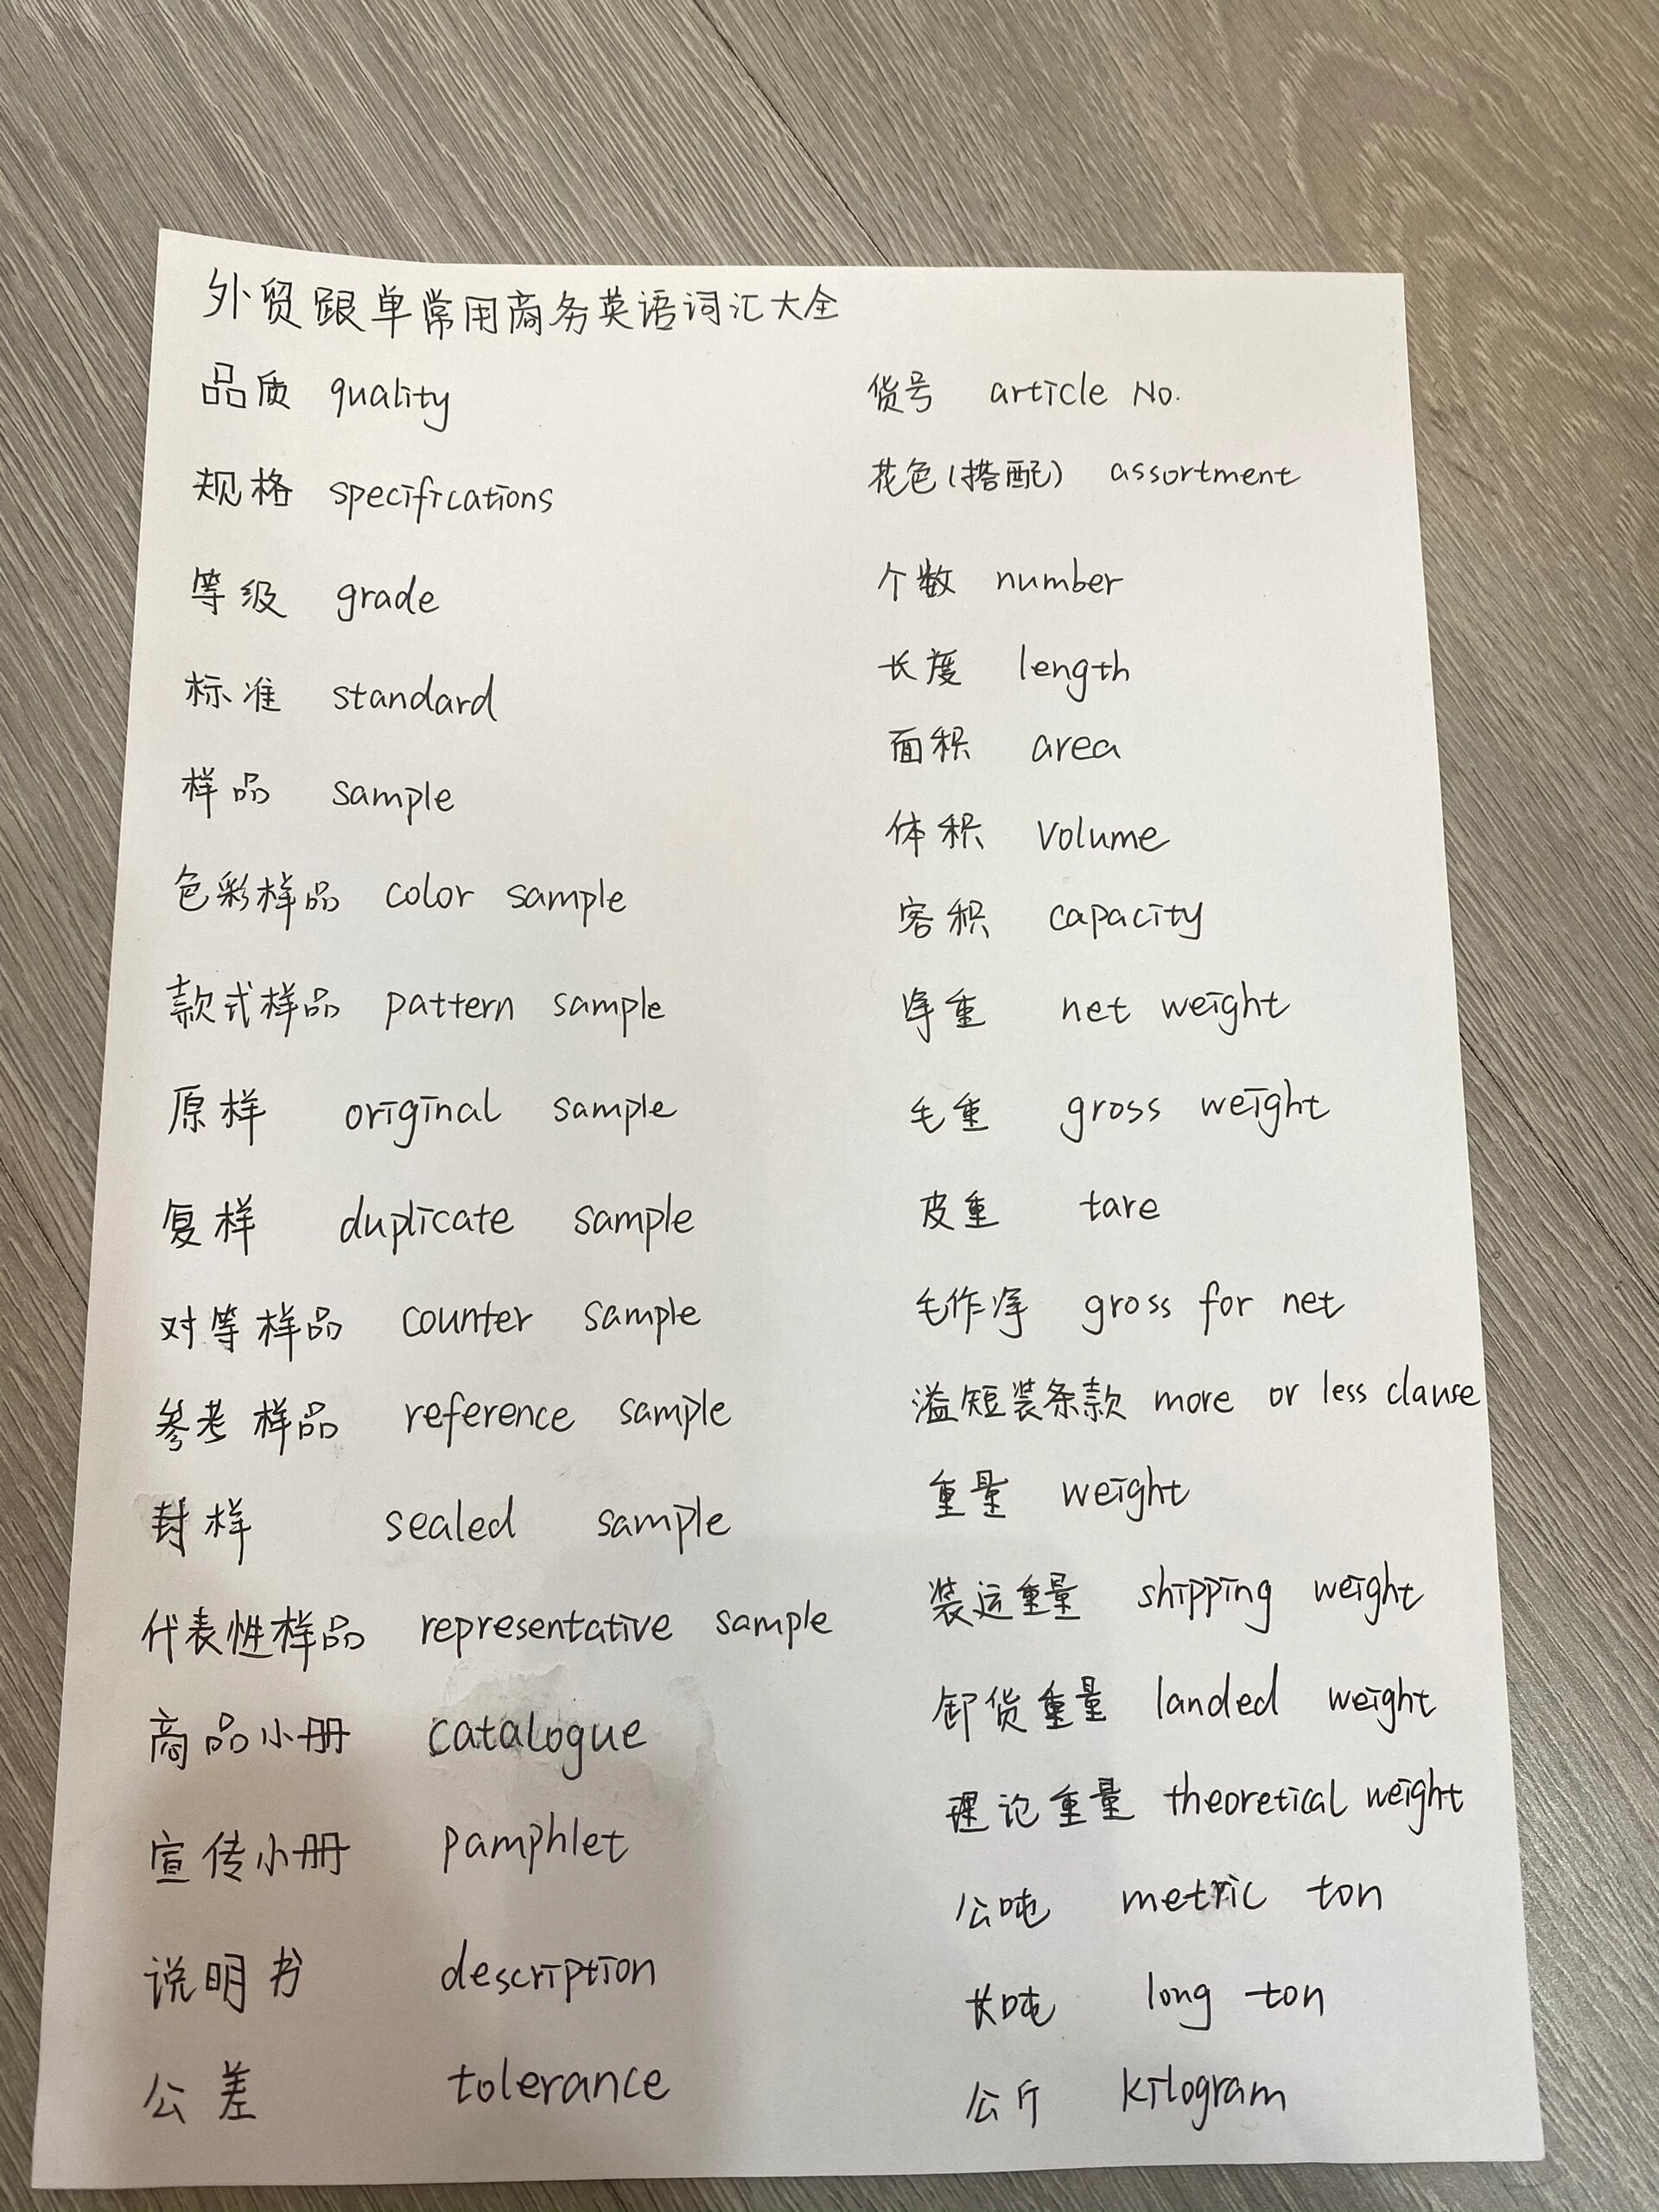 外贸跟单常用商务英语词汇大全
品质 quality
规格 specifications
等级 grade
标准 standard
样品 sample
色彩样品 color sample
款式样品 pattern sample
原样 original sample
复样 duplicate sample
对等样品 counter sample
参考样品 reference sample
封样 sealed sample
代表性样品 representative sample
商品小册 catalogue
宣传小册 pamphlet
说明书 description
公差 tolerance
货号 article No.
花色(搭配) assortment
个数 number
长度 length
面积 area
体积 volume
容积 capacity
净重 net weight
毛重 gross weight
皮重 tare
毛作净 gross for net
溢短装条款 more or less clause
重量 weight
装运重量 shipping weight
卸货重量 landed weight
理论重量 theoretical weight
公吨 metric ton
长吨 long ton
公斤 kilogram